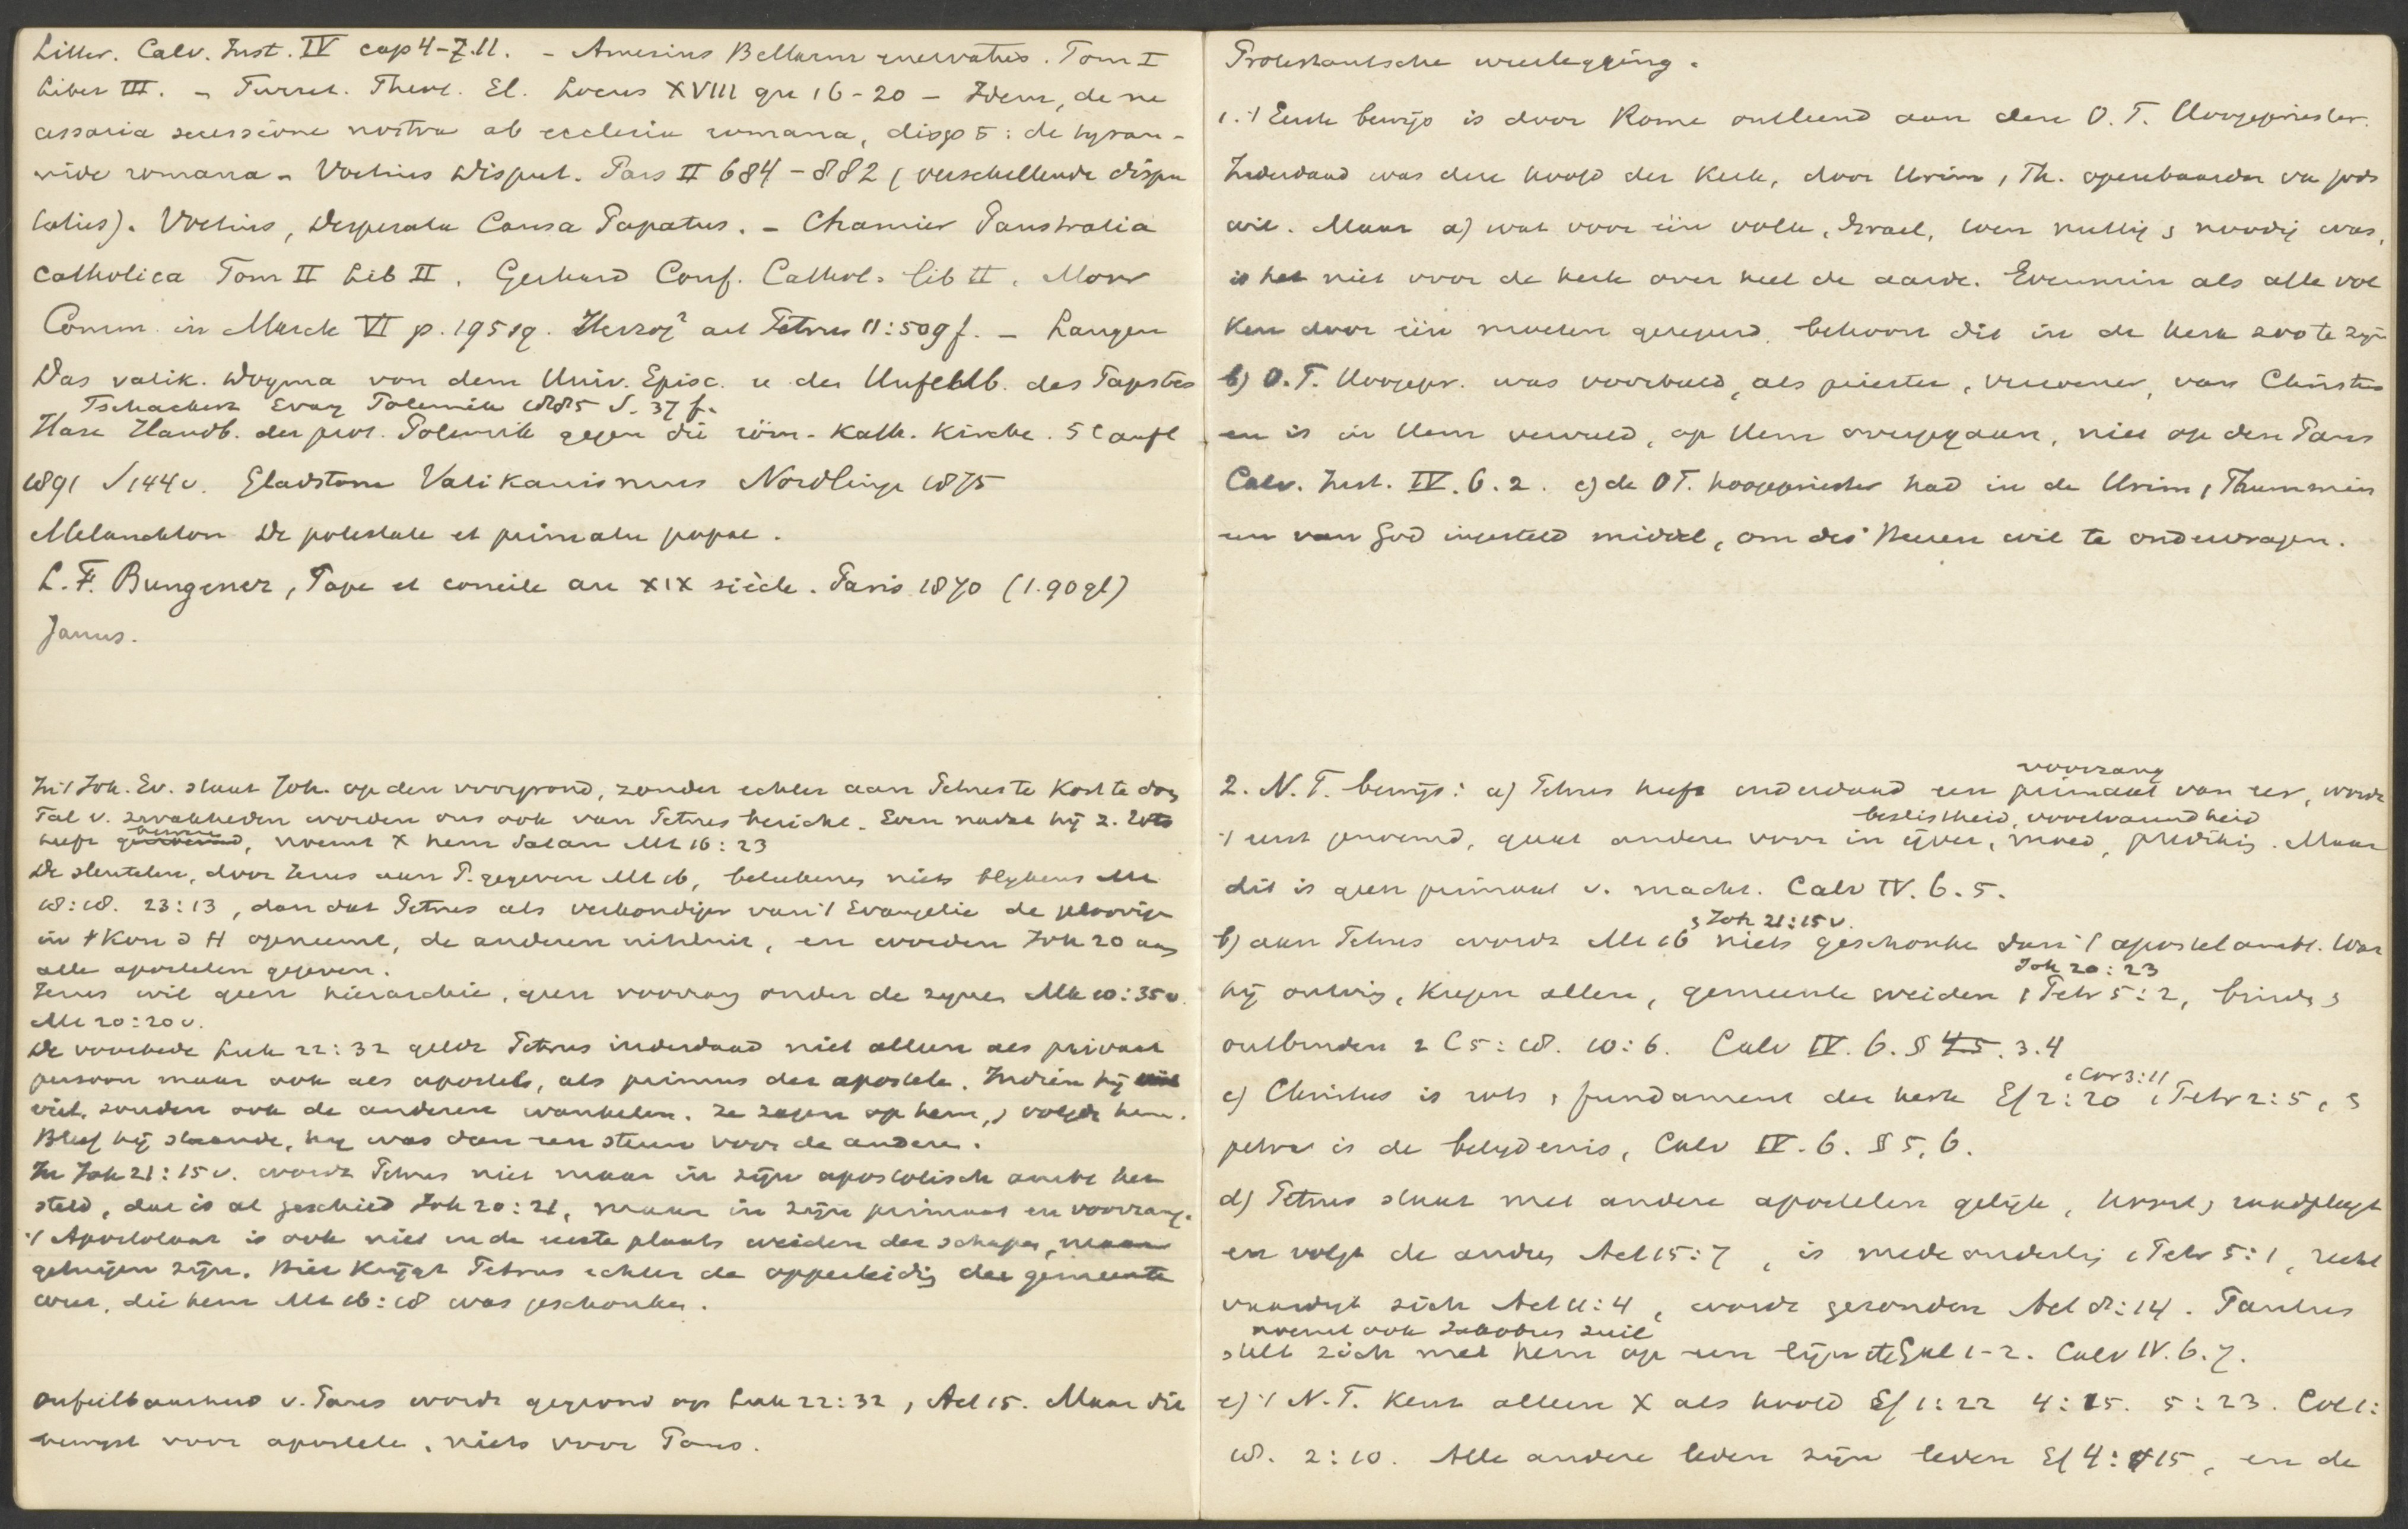 Litter. Calv. Inst. IV cap 4-7.11. - Amesius Bellarm enervatus. Tom I
Liber III. - Turret. Theol. El. Locus XVIII qu 16-20 - Idem, de ne
cessaria secessione nostra ab ecclesia romana, disp 5: de tyran-
nide romana - Voetius Disput. Pars II 684-882 (verschillende dispu
taties). Voetius, Desperata Causa Papatus. - Chamier Panstratia
catholica Tom II Lib II. Gerhard Conf. Cathol. lib II. Moor
Comm. in Marck VI p. 195 sq. Herzog² art Petrus 11:509 f. - Langen
Das vatik. Dogma von dem Univ. Episc. u der Unfehlb. des Papstes
Tschackert Evang Polemik 1885 S. 37 f.
Hase Handb. der prot. Polemik gegen die röm. kath. Kirche. 5e aufl
1891 S 144 v. Gladstone Vatikanismus Nordlinge 1875
Melanchton De potestate et primatu papae.
L. F. Bungener, Pape et concile au XIX siècle. Paris 1870 (1.90 gl)
Janus.
In 't Joh. Ev. staat Joh. op den voorgrond, zonder echter aan Petrus te kort te doen
Tal v. zwakheden worden ons ook van Petrus bericht. Even nadat hij z.
heeft, noemt X hem Satan Mt 16:23
De sleutelen, door Jezus aan P. gegeven Mt 16, beteekenen niets blykens Mt
18:18. 23:13, dan dat Petrus als verkondiger van 't Evangelie de geloovige
in 't Kon d H opneemt, de anderen uitsluit, en worden Joh 20 aan
alle apostelen gegeven.
Jezus wil geen hierarchie, geen voorrang onder de zynen Mk 10:35 v.
Mt 20:20 v.
De voorbede Luk 22:32 geldt Petrus inderdaad niet alleen als privaat
persoon maar ook als apostel, als primus der apostelen. Indien hij
viel, zouden ook de anderen wankelen. Ze zagen op hem, & volgde hem.
Bleef hij staande, hy was dan een steun voor de andere.
In Joh 21:15 v. wordt Petrus niet maar in zijn apostolisch ambt her
steld, dat is al geschied Joh 20:21, maar in zijn primaat en voorrang.
't Apostolaat is ook niet in de eerste plaats weiden der schapen, maar
getuigen zijn. Hier krijgt Petrus echter de opperleidig der gemeente
weer, die hem Mt 16:18 was geschonken.
Onfeilbaarheid v. Paus wordt gegrond op Luk 22:32, Act 15. Maar die
bewijst voor apostelen, niets voor Paus.
Protestantsche weerlegging.
1. 't Eerste bewijs is door Rome ontleend aan den O. T. Hoogepriester.
Inderdaad was deze hoofd der kerk, door Urim, Th. openbaarder van Gods
wil. Maar a) wat voor één volk, Israel, toen nuttig & noodig was,
is het niet voor de kerk over heel de aarde. Evenmin als alle vol
ken door één moeten geregeerd, behoort dit in de kerk zoo te zijn
b) O. T. Hoogepr. was voorbeeld, als priester, verzoener, van Christus
en is in Hem vervuld, op Hem overgegaan, niet op den Paus
Calv. Inst. IV. 6. 2. c) de OT. hoogepriester had in de Urim, Thummim
een van God ingesteld middel, om des Heeren wil te ondervragen.
2. N. T. bewijs: a) Petrus heeft inderdaad een primaat voorrang van eer, wordt
't eerst genoemd, gaat andere voor in ijver, moed, beslistheid, voortvarendheid prediking. Maar
dit is geen primaat v. macht. Calv IV. 6. 5.
b) aan Petrus wordt Mt 16 & Joh 21:15 v. niets geschonken dan 't apostelambt. Wat
hij ontving, kregen allen, gemeente weiden 1 Petr 5:2, binden &
Joh 20:23
ontbinden 2 C 5:18. 10:6. Calv IV. 6. § 4 5. 3. 4
c) Christus is rots & fundament der kerk Ef 2:20 1 Cor 3:11 1 Petr 2:5, &
petra is de belydenis, Calv IV. 6. § 5, 6.
d) Petrus staat met andere apostelen gelijk, hoort & raadpleegt
en volgt de andere Act 15:7, is medeouderling 1 Petr 5:1, recht
vaardigt zich Act 11:4, wordt gezonden Act 8:14. Paulus
noemt ook Jakobus zuil
stelt zich met hem op een lijn Gal 1-2. Calv IV. 6. 7.
e) 't N. T. kent alleen X als hoofd Ef 1:22 4:15. 5:23. Col 1:
18. 2:10. Alle andere leden zijn leden Ef 4:15, en de